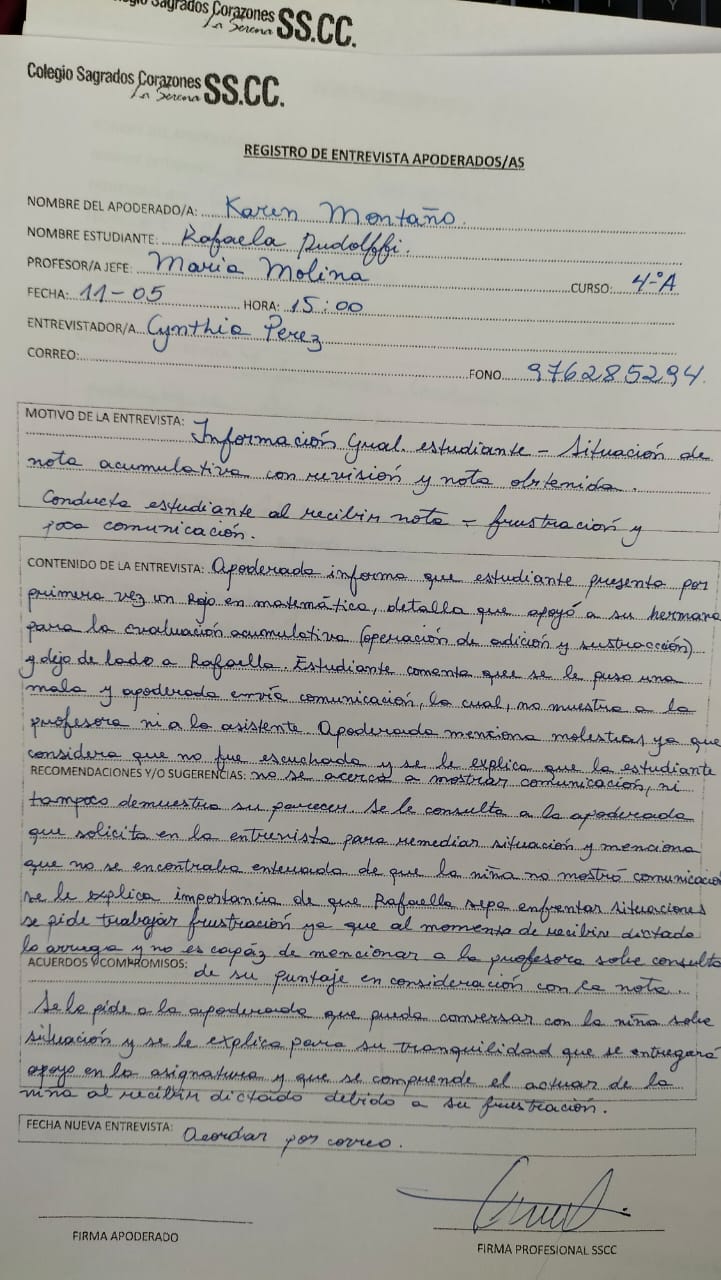 Colegio Sagrados Corazones
La Serena SS.CC.
Colegio Sagrados Corazones
La Serena SS.CC.
REGISTRO DE ENTREVISTA APODERADOS/AS
NOMBRE DEL APODERADO/A: Karen Montaño.
NOMBRE ESTUDIANTE: Rafaela Rudolffi.
PROFESOR/A JEFE: Maria Molina CURSO: 4°A
FECHA: 11-05 HORA: 15:00
ENTREVISTADOR/A Cynthia Perez
CORREO: FONO 976285294.
MOTIVO DE LA ENTREVISTA: Información Gral. estudiante - Situación de
nota acumulativa con revisión y nota obtenida.
Conducta estudiante al recibir nota - frustración y
poca comunicación.
CONTENIDO DE LA ENTREVISTA: Apoderada informa que estudiante presenta por
primera vez un rojo en matemática, detalla que apoyó a su hermana
para la evaluación acumulativa (operación de adición y sustracción)
y dejo de lado a Rafaella. Estudiante comenta que se le puso una
mala y apoderada envía comunicación, la cual, no muestra a la
profesora ni a la asistente. Apoderada menciona molestias ya que
considera que no fue escuchada y se le explica que la estudiante
RECOMENDACIONES Y/O SUGERENCIAS: no se acerca a mostrar comunicación, ni
tampoco demuestra su parecer. Se le consulta a la apoderada
que solicita en la entrevista para remediar situación y menciona
que no se encontraba enterada de que la niña no mostró comunicación
se le explica importancia de que Rafaella sepa enfrentar situaciones
se pide trabajar frustración ya que al momento de recibir dictado
lo arruga y no es capáz de mencionar a la profesora sobre consulta
ACUERDOS Y COMPROMISOS: de su puntaje en consideración con la nota.
Se le pide a la apoderada que pueda conversar con la niña sobre
situación y se le explica para su tranquilidad que se entregará
apoyo en la asignatura y que se comprende el actuar de la
niña al recibir dictado debido a su frustración.
FECHA NUEVA ENTREVISTA: Acordar por correo.
FIRMA APODERADO
FIRMA PROFESIONAL SSCC